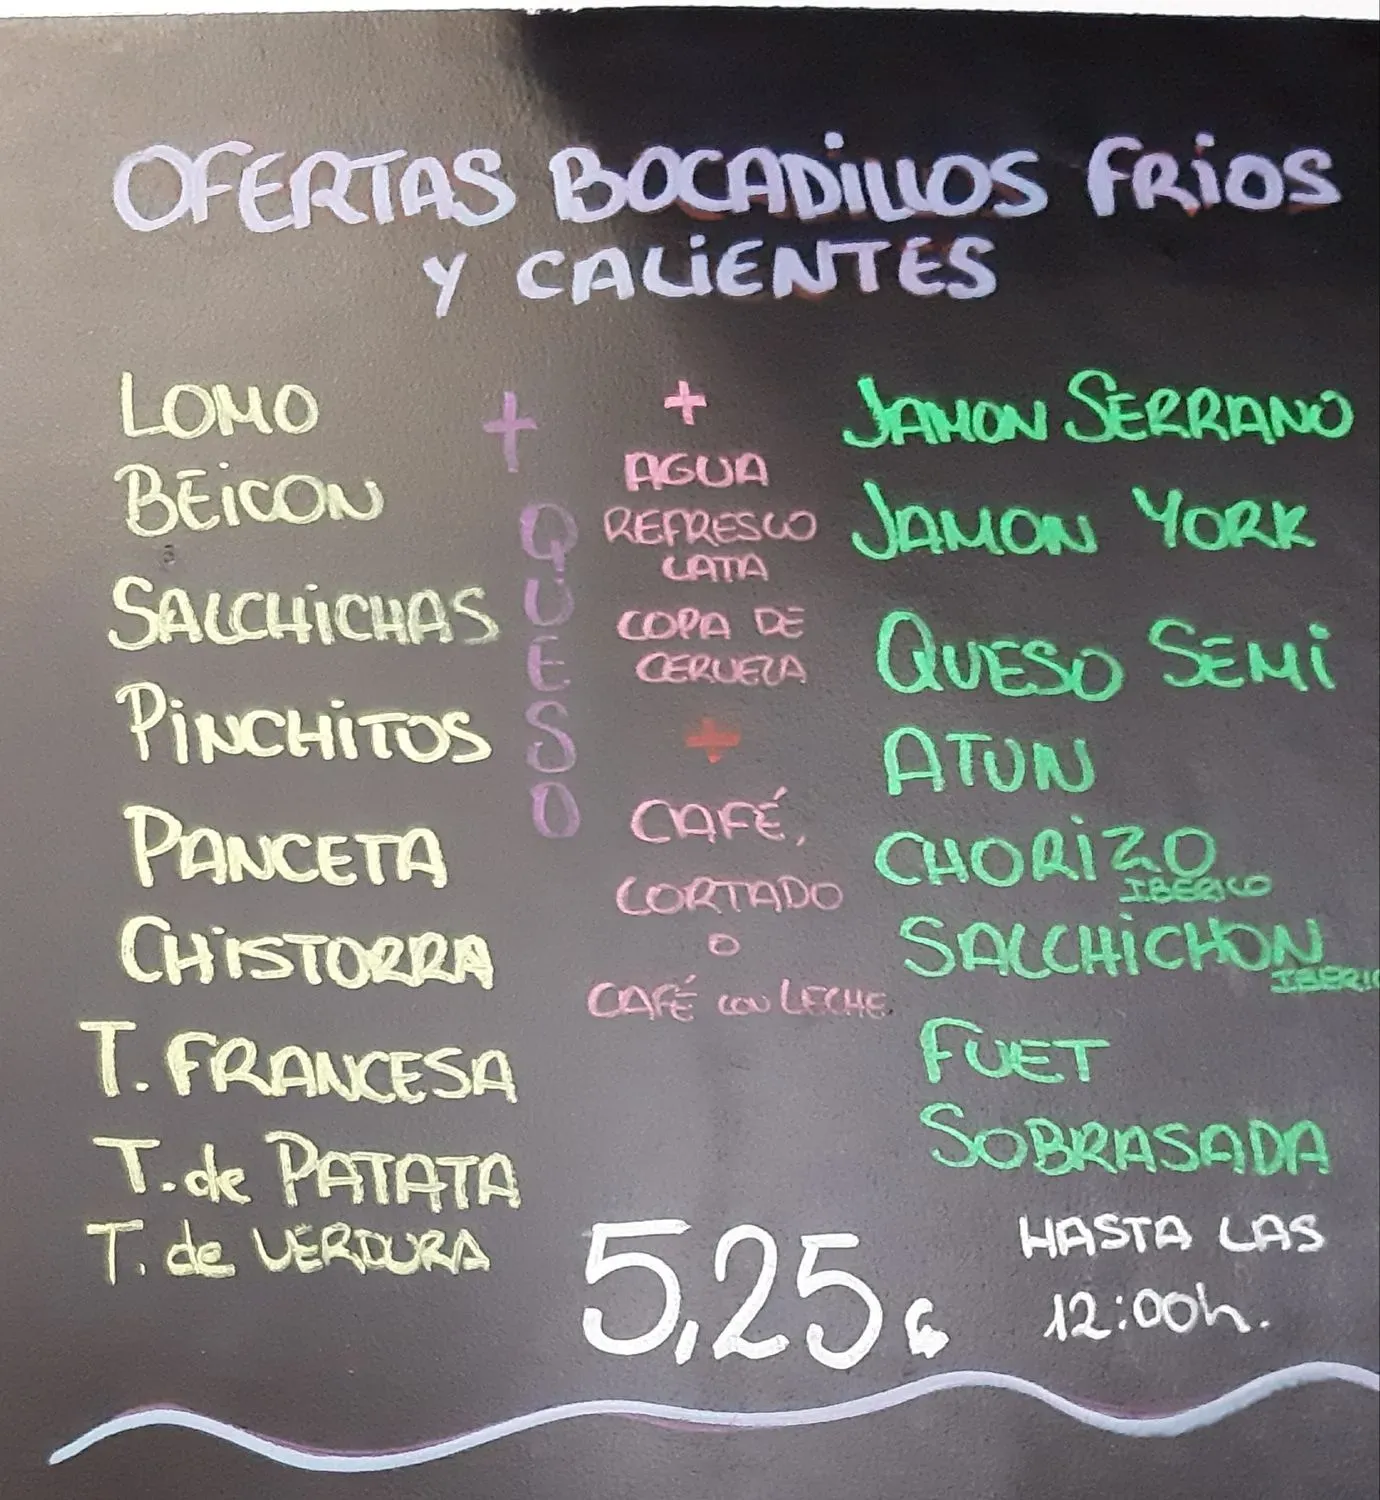 OFERTAS BOCADILLOS FRIOS
Y CALIENTES
LOMO
BEICON
SALCHICHAS
PINCHITOS
PANCETA
CHISTORRA
T. FRANCESA
T. de PATATA
T. de VERDURA
+
QUESO
+
AGUA
REFRESCO
LATA
COPA DE
CERVEZA
+
CAFÉ,
CORTADO
O
CAFÉ CON LECHE
JAMON SERRANO
JAMON YORK
QUESO SEMI
ATUN
CHORIZO
IBERICO
SALCHICHON
IBERIC
FUET
SOBRASADA
5,25€
HASTA LAS
12:00h.